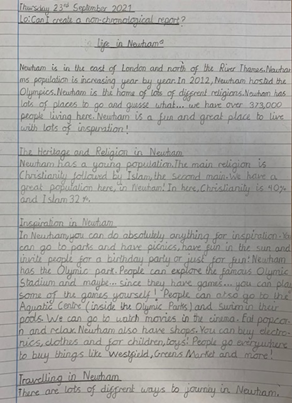 Thursday 23rd September 2021
Lo: Can I create a non-chronological report?
"life in Newham"
Newham is in the east of London and north of the River Thames. Newham
ms population is increasing year by year. In 2012, Newham hosted the
Olympics. Newham is the home of lots of different religions. Newham has
lots of places to go and guesst what... we have over 373,000
people living here. Newham is a fun and great place to live
with lots of inspiration!
The Heritage and Religion in Newham
Newham has a young population. The main religion is
Christianity followed by Islam, the second main. We have a
great population here, in Newham! In here, Christianity is 40%
and Islam 32%.
Inspiration in Newham
In Newham, you can do absolutely anything for inspiration. You
can go to parks and have picnics, have fun in the sun and
invite people for a birthday party or just for fun! Newham
has the Olympic park. People can explore the famous Olympic
Stadium and maybe... since they have games... you can play
some of the games yourself! People can also go to the
Aquatic Centre (inside the Olymic Park) and swim in their
pools. We can go to watch movies in the cinema. Eat popcor-
n and relax. Newham also have shops. You can buy electro-
nics, clothes and for children, toys! People go everywhere
to buy things like Westfield, Greens Market and more!
Travelling in Newham
There are lots of different ways to journey in Newham.